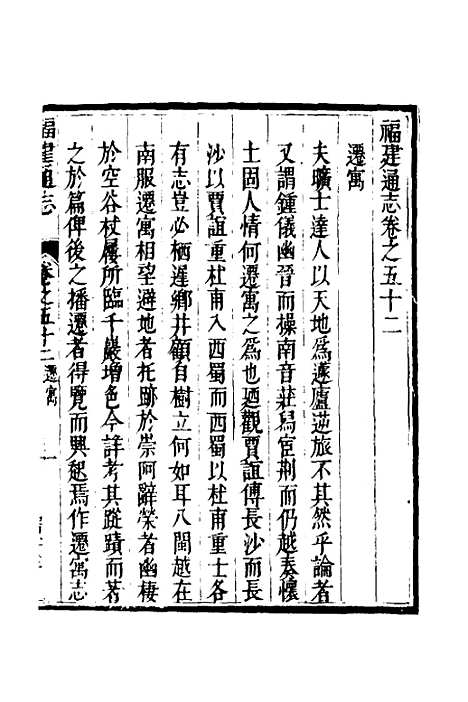 福建通志卷之五十二
遷寓
夫曠士達人以天地爲蘧廬逆旅不其然乎論者
又謂鍾儀幽晉而操南音莊舄宦荆而仍越奏懷
土固人情何遷寓之爲也廼觀賈誼傅長沙而長
沙以賈誼重杜甫入西蜀而西蜀以杜甫重士各
有志豈必栖遲鄉井顧自樹立何如耳八閩越在
南服遷寓相望避地者托跡於崇阿辭榮者幽棲
於空谷杖屨所臨千巖增色今詳考其蹤蹟而著
之於篇俾後之播遷者得覽而興起焉作遷寓志
福建通志
卷之五十二
遷寓
一